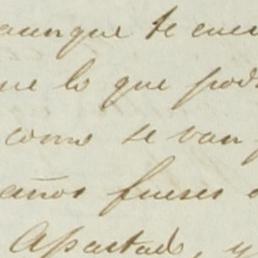 aunque te cues
ue lo que pod
como se van
años fueses
Apartado, y